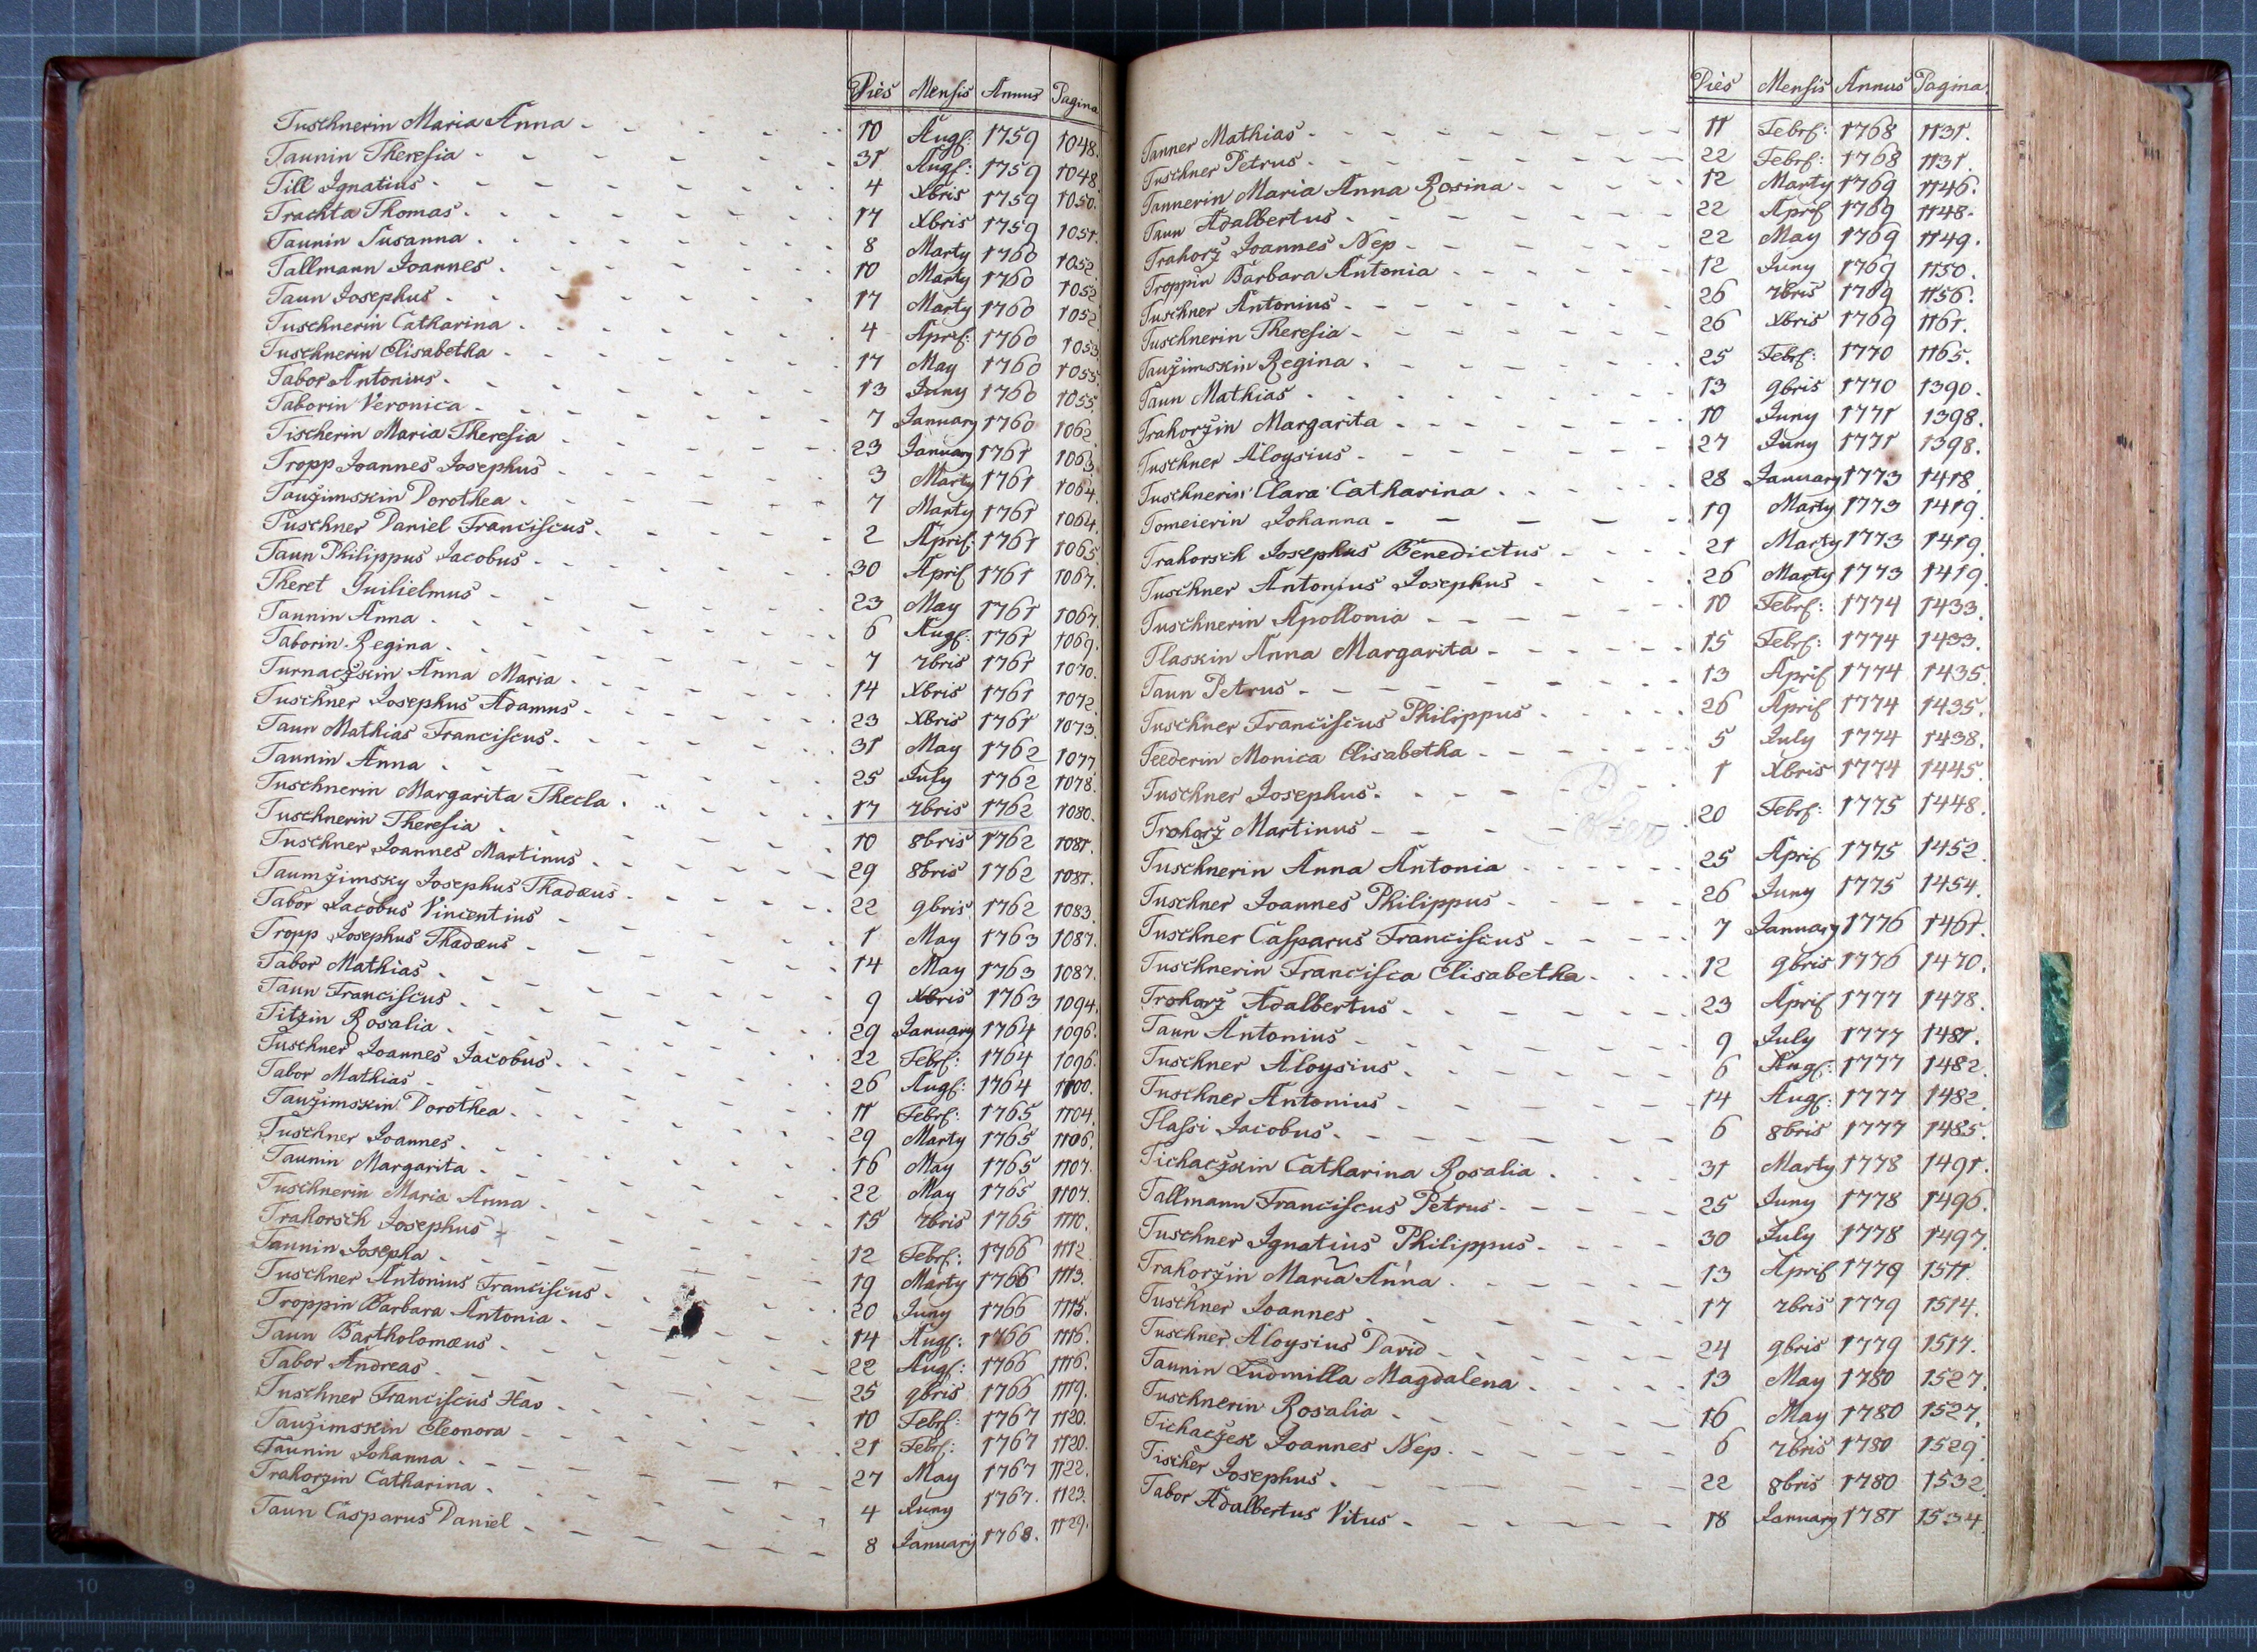 Dies Mensis Annus Pagina
Tuschnerin Maria Anna 10 Augſ: 1759 1048.
Taunin Thereſia 31 Augſ: 1759 1048
Till Ignatius 4 Xbris 1759 1050.
Trachta Thomas 17 Xbris 1759 1051.
Taunin Susanna 8 Marty 1760 1052
Tallmann Joannes 10 Marty 1760 1052
Taun Josephus 17 Marty 1760 1052
Tuschnerin Catharina 4 Aprſ: 1760 1053
Tuschnerin Elisabetha 17 May 1760 1055.
Tabor Antonius 13 Juny 1760 1055.
Taborin Veronica 7 January 1760 1062
Tischerin Maria Thereſia 23 January 1761 1063
Tropp Joannes Josephus 3 Marty 1761 1064.
Taužimskin Dorothea 7 Marty 1761 1064.
Tuschner Daniel Franciſcus 2 Apriſ 1761 1065
Taun Philippus Jacobus 30 Apriſ 1761 1067.
Theret Guilielmus 23 May 1761 1067.
Taunin Anna 6 Augſ: 1761 1069.
Taborin Regina 7 7bris 1761 1070.
Turnaczkin Anna Maria 14 Xbris 1761 1072
Tuschner Josephus Adamus 23 Xbris 1761 1073.
Taun Mathias Franciſcus 31 May 1762 1077
Taunin Anna 25 July 1762 1078.
Tuschnerin Margarita Thecla 17 7bris 1762 1080.
Tuschnerin Thereſia 10 8bris 1762 1081.
Tuschner Joannes Martinus 29 8bris 1762 1081.
Taumžimsky Josephus Thadæus 22 9bris 1762 1083.
Tabor Jacobus Vincentius 1 May 1763 1087.
Tropp Josephus Thadæus 14 May 1763 1087.
Tabor Mathias 9 Xbris 1763 1094.
Taun Franciſcus 29 January 1764 1096.
Titzin Rosalia 22 Febrſ: 1764 1096.
Tuschner Joannes Jacobus 26 Augſ: 1764 1100.
Tabor Mathias 11 Febrſ: 1765 1104.
Taužimskin Dorothea 29 Marty 1765 1106.
Tuschner Joannes 16 May 1765 1107.
Taunin Margarita 22 May 1765 1107.
Tuschnerin Maria Anna 15 7bris 1765 1110.
Trahorsch Josephus 12 Febrſ: 1766 1112
Taunin Josepha 19 Marty 1766 1113.
Tuschner Antonius Franciſcus 20 Juny 1766 1115.
Troppin Barbara Antonia 14 Augſ: 1766 1116.
Taun Bartholomæus 22 Augſ: 1766 1116.
Tabor Andreas 25 9bris 1766 1119.
Tuschner Franciſcus Xav 10 Febrſ: 1767 1120.
Taužimskin Eleonora 21 Febrſ: 1767 1120.
Taunin Johanna 27 May 1767 1122.
Trahorzin Catharina 4 Juny 1767. 1123.
Taun Casparus Daniel 8 January 1768. 1129.
Dies Mensis Annus Pagina
Tanner Mathias 11 Febrſ: 1768 1131.
Tuschner Petrus 22 Febrſ: 1768 1131.
Tannerin Maria Anna Rosina 12 Marty 1769 1146.
Taun Adalbertus 22 Apriſ 1769 1148.
Trahorž Joannes Nep 22 May 1769 1149.
Troppin Barbara Antonia 12 Juny 1769 1150.
Tuschner Antonius 26 7bris 1769 1156.
Tuschnerin Thereſia 26 Xbris 1769 1161.
Taužimskin Regina 25 Febrſ: 1770 1165.
Taun Mathias 13 9bris 1770 1390.
Trahoržin Margarita 10 Juny 1771 1398.
Tuschner Aloysius 27 Juny 1771 1398.
Tuschnerin Clara Catharina 28 January 1773 1418.
Tomeierin Johanna 19 Marty 1773 1419.
Trahorsch Josephus Benedictus 21 Marty 1773 1419.
Tuschner Antonius Josephus 26 Marty 1773 1419.
Tuschnerin Apollonia 10 Febrſ: 1774 1433.
Tlaskin Anna Margarita 15 Febrſ: 1774 1433.
Taun Petrus 13 Apriſ 1774 1435.
Tuschner Franciſcus Philippus 26 Apriſ 1774 1435.
Teederin Monica Elisabetha 5 July 1774 1438.
Tuschner Josephus 1 Xbris 1774 1445.
Trohorž Martinus 20 Febrſ: 1775 1448.
Tuschnerin Anna Antonia 25 Apriſ 1775 1452
Tuschner Joannes Philippus 26 Juny 1775 1454.
Tuschner Casparus Franciſcus 7 January 1776 1461.
Tuschnerin Franciſca Elisabetha 12 9bris 1776 1470.
Trohorž Adalbertus 23 Apriſ 1777 1478.
Taun Antonius 9 July 1777 1481.
Tuschner Aloysius 6 Augſ: 1777 1482.
Tuschner Antonius 14 Augſ: 1777 1482
Tlaſsi Jacobus 6 8bris 1777 1485.
Tichaczkin Catharina Rosalia 31 Marty 1778 1491.
Tallmann Franciſcus Petrus 25 Juny 1778 1496.
Tuschner Ignatius Philippus 30 July 1778 1497.
Trahoržin Maria Anna 13 Apriſ 1779 1511.
Tuschner Joannes 17 7bris 1779 1514.
Tuschner Aloysius David 24 9bris 1779 1517.
Taunin Ludmilla Magdalena 13 May 1780 1527.
Tuschnerin Rosalia 16 May 1780 1527.
Tichaczek Joannes Nep. 6 7bris 1780 1529.
Tischer Josephus 22 8bris 1780 1532
Tabor Adalbertus Vitus 18 January 1781 1534